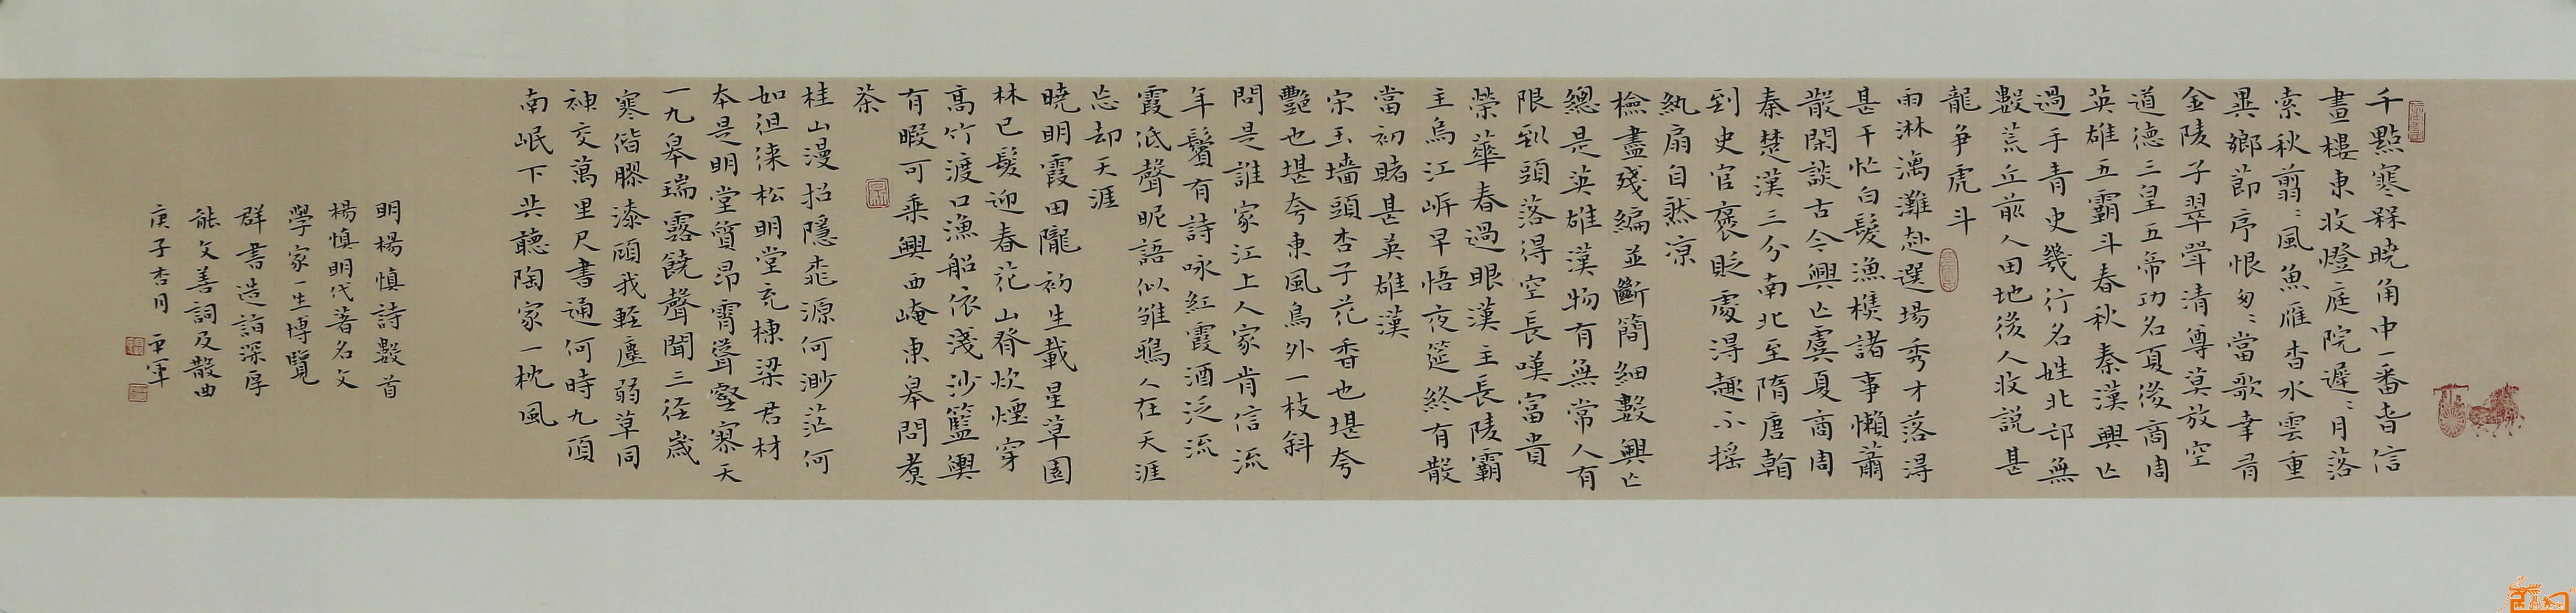 千點寒梅曉角中一番春信
畫樓東收燈庭院遲遲月落
索秋翦翦風魚雁杳水雲重
異鄉節序恨匆匆當歌幸有
金陵子翠斝清尊莫放空
道德三皇五帝功名夏後商周
英雄五霸鬥春秋秦漢興亡
過手青史幾行名姓北邙無
數荒丘前人田地後人收說甚
龍爭虎斗
雨淋漓灘赴選場秀才落得
甚干忙白髮漁樵諸事懶蕭
散閑談古今興亡虞夏商周
秦楚漢三分南北至隋唐翰
到史官褒貶處得趣不搖
紈扇自然涼
檢盡殘編並斷簡細數興亡
總是英雄漢物有無常人有
限到頭落得空長嘆富貴
榮華春過眼漢主長陵霸
主烏江岍早悟夜筵終有散
當初賭甚英雄漢
宋玉墻頭杏子花香也堪夸
艷也堪夸東風鳥外一枝斜
問是誰家江上人家肯信流
年鬢有詩咏紅霞酒泛流
霞低聲昵語似雏鴉人在天涯
忘却天涯
曉明霞田隴初生載星草園
林已髮迎春花山脊炊煙穿
高竹渡口漁船依淺沙籃輿
有暇可乘興西崦東皋問煮
茶
桂山漫招隱桃源何渺茫何
如徂徠松明堂充棟梁君材
本是明堂質昂霄聳壑寥天
一九皋瑞露饒聲聞三徑歲
寒偕膠漆顧我輕塵弱草同
神交萬里尺書通何時九頂
南岷下共聽陶家一枕風
明楊慎詩數首
楊慎明代著名文
學家一生博覽
群書造詣深厚
能文善詞及散曲
庚子杏月 平軍